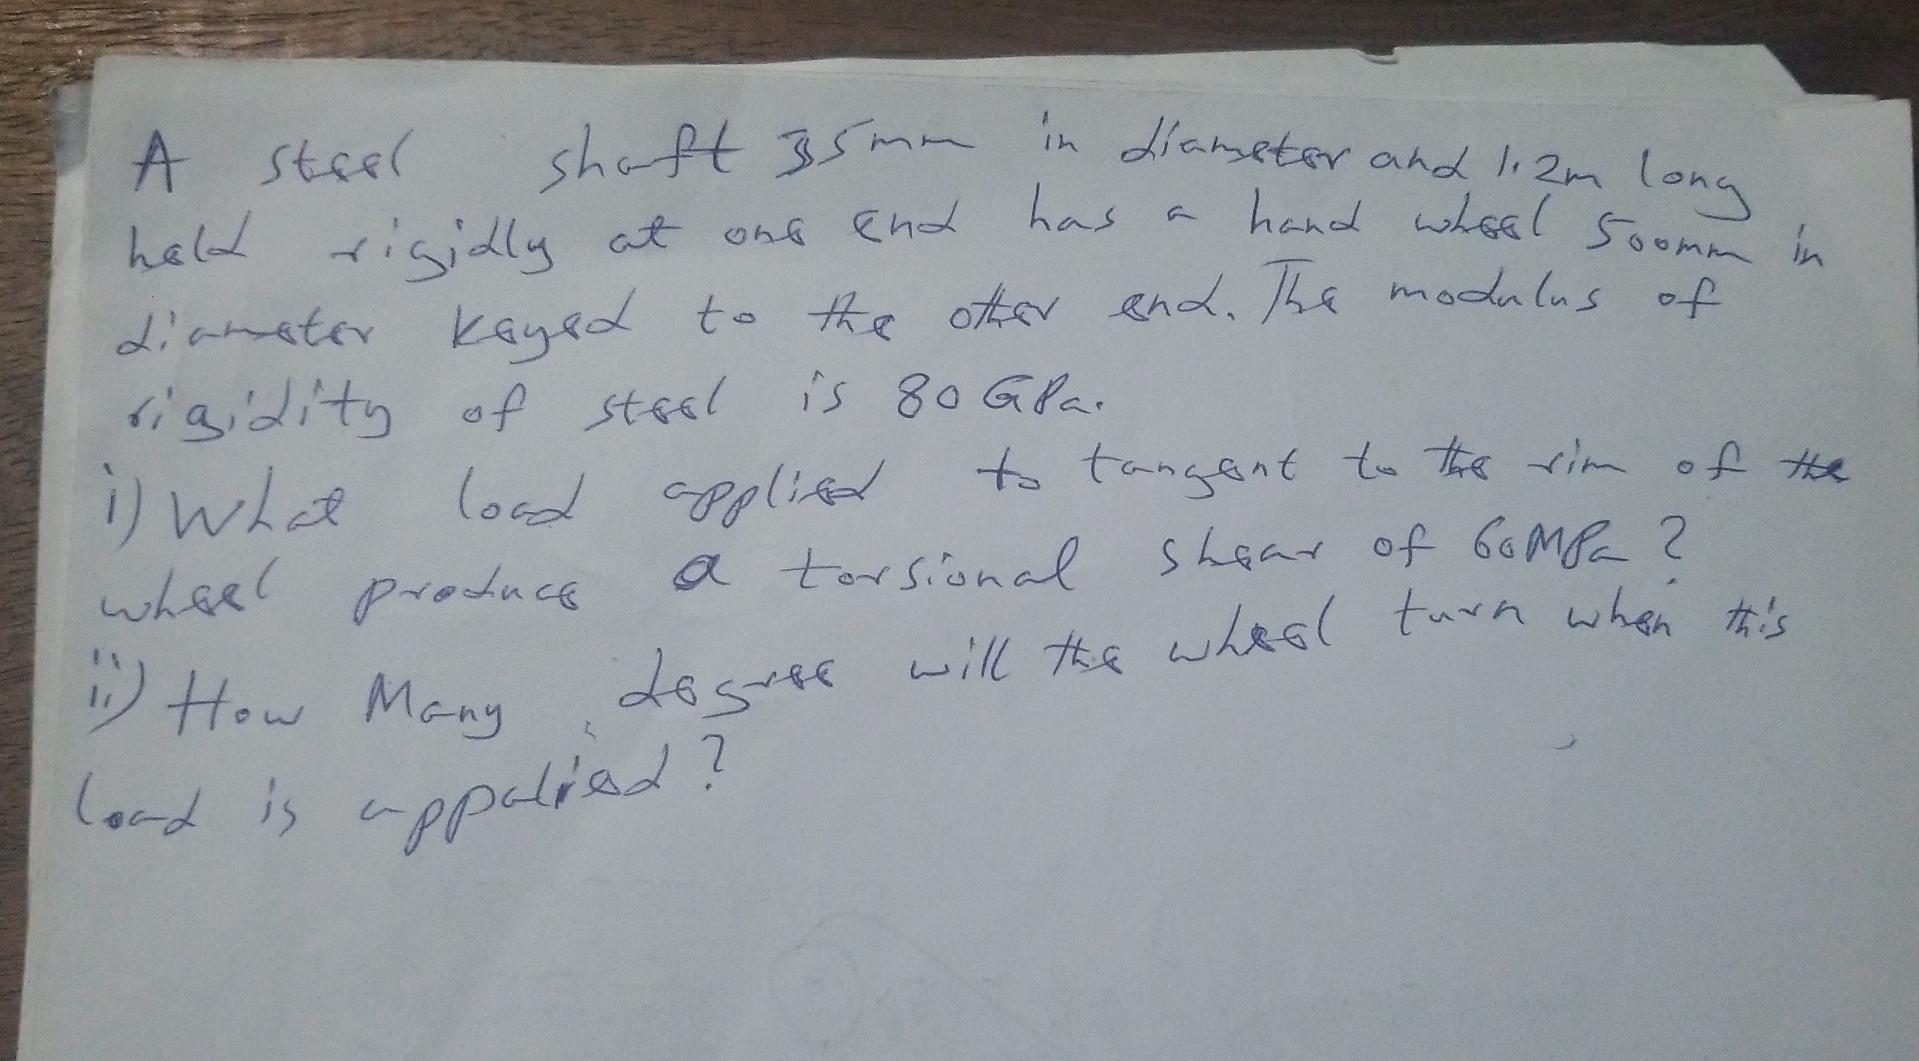 A steel shaft 35mm in diameter and 1.2m long
held rigidly at one end has a hand wheel 500mm in
diameter keyed to the other end. The modulus of
rigidity of steel is 80 GPa.
i) What load applied to tangent to the rim of the
wheel produce a torsional shear of 60MPa?
ii) How Many degree will the wheel turn when this
load is appalied?